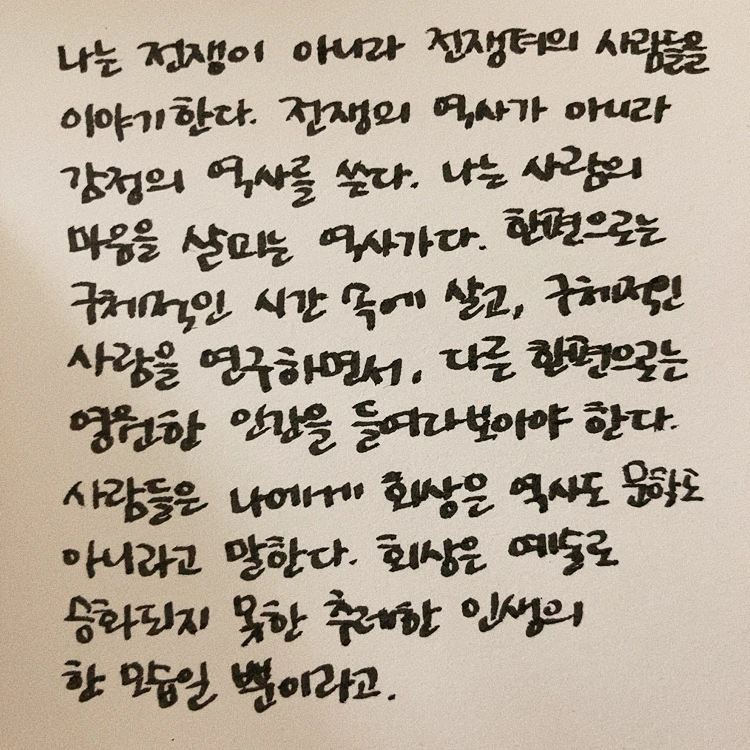 나는 전쟁이 아니라 전쟁터의 사람들을
이야기한다. 전쟁의 역사가 아니라
감정의 역사를 쓴다. 나는 사람의
마음을 살피는 역사가다. 한편으로는
구체적인 시간 속에 살고, 구체적인
사람을 연구하면서, 다른 한편으로는
영원한 인간을 들여다보아야 한다.
사람들은 나에게 회상은 역사도 문학도
아니라고 말한다. 회상은 예술로
승화되지 못한 추레한 인생의
한 모습일 뿐이라고.